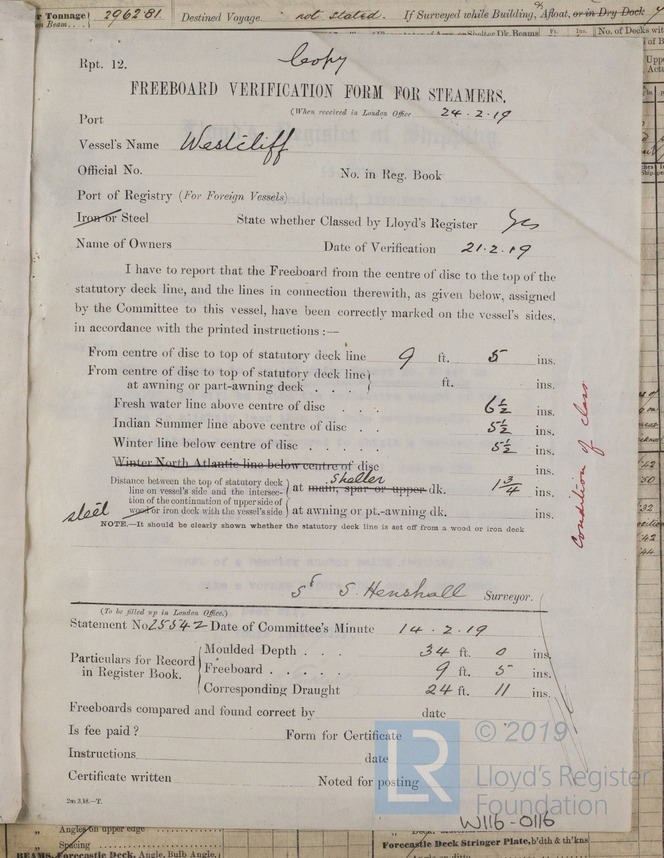 r Tonnage 2962·81. Destined Voyage. not stated. If Surveyed while Building, Afloat, or in Dry Dock
on Beam
No. of Decks wit
Copy
Rpt. 12.
FREEBOARD VERIFICATION FORM FOR STEAMERS.
(When received in London Office 24·2·19
Port
Vessel's Name Westcliff
Official No. No. in Reg. Book
Port of Registry (For Foreign Vessels)
Iron or Steel State whether Classed by Lloyd's Register Yes
Name of Owners Date of Verification 21·2·19
I have to report that the Freeboard from the centre of disc to the top of the
statutory deck line, and the lines in connection therewith, as given below, assigned
by the Committee to this vessel, have been correctly marked on the vessel's sides,
in accordance with the printed instructions :—
From centre of disc to top of statutory deck line 9 ft. 5 ins.
From centre of disc to top of statutory deck line
at awning or part-awning deck . . . ft. ins.
Fresh water line above centre of disc . . . 6½ ins.
Indian Summer line above centre of disc . . 5½ ins.
Winter line below centre of disc . . . . . 5½ ins.
Winter North Atlantic line below centre of disc ins.
Distance between the top of statutory deck
line on vessel's side and the intersec-
tion of the continuation of upper side of
wood or iron deck with the vessel's side
steel
shelter
at main, spar or upper dk. 1¾ ins.
at awning or pt.-awning dk. ins.
Condition of class
NOTE.—It should be clearly shown whether the statutory deck line is set off from a wood or iron deck
S. Henshall Surveyor.
(To be filled up in London Office.)
Statement No 25542 Date of Committee's Minute 14·2·19
Particulars for Record
in Register Book.
Moulded Depth . . . 34 ft. 0 ins.
Freeboard . . . . . 9 ft. 5 ins.
Corresponding Draught 24 ft. 11 ins.
Freeboards compared and found correct by date
Is fee paid ? Form for Certificate
Instructions date
Certificate written Noted for posting
2m.3,18.—T.
LR
© 2019
Lloyd's Register
Foundation
W116-0116
" Angles on upper edge
" Spacing
BEAMS, Forecastle Deck, Angle, Bulb Angle,
Forecastle Deck Stringer Plate, b'dth & th'kns